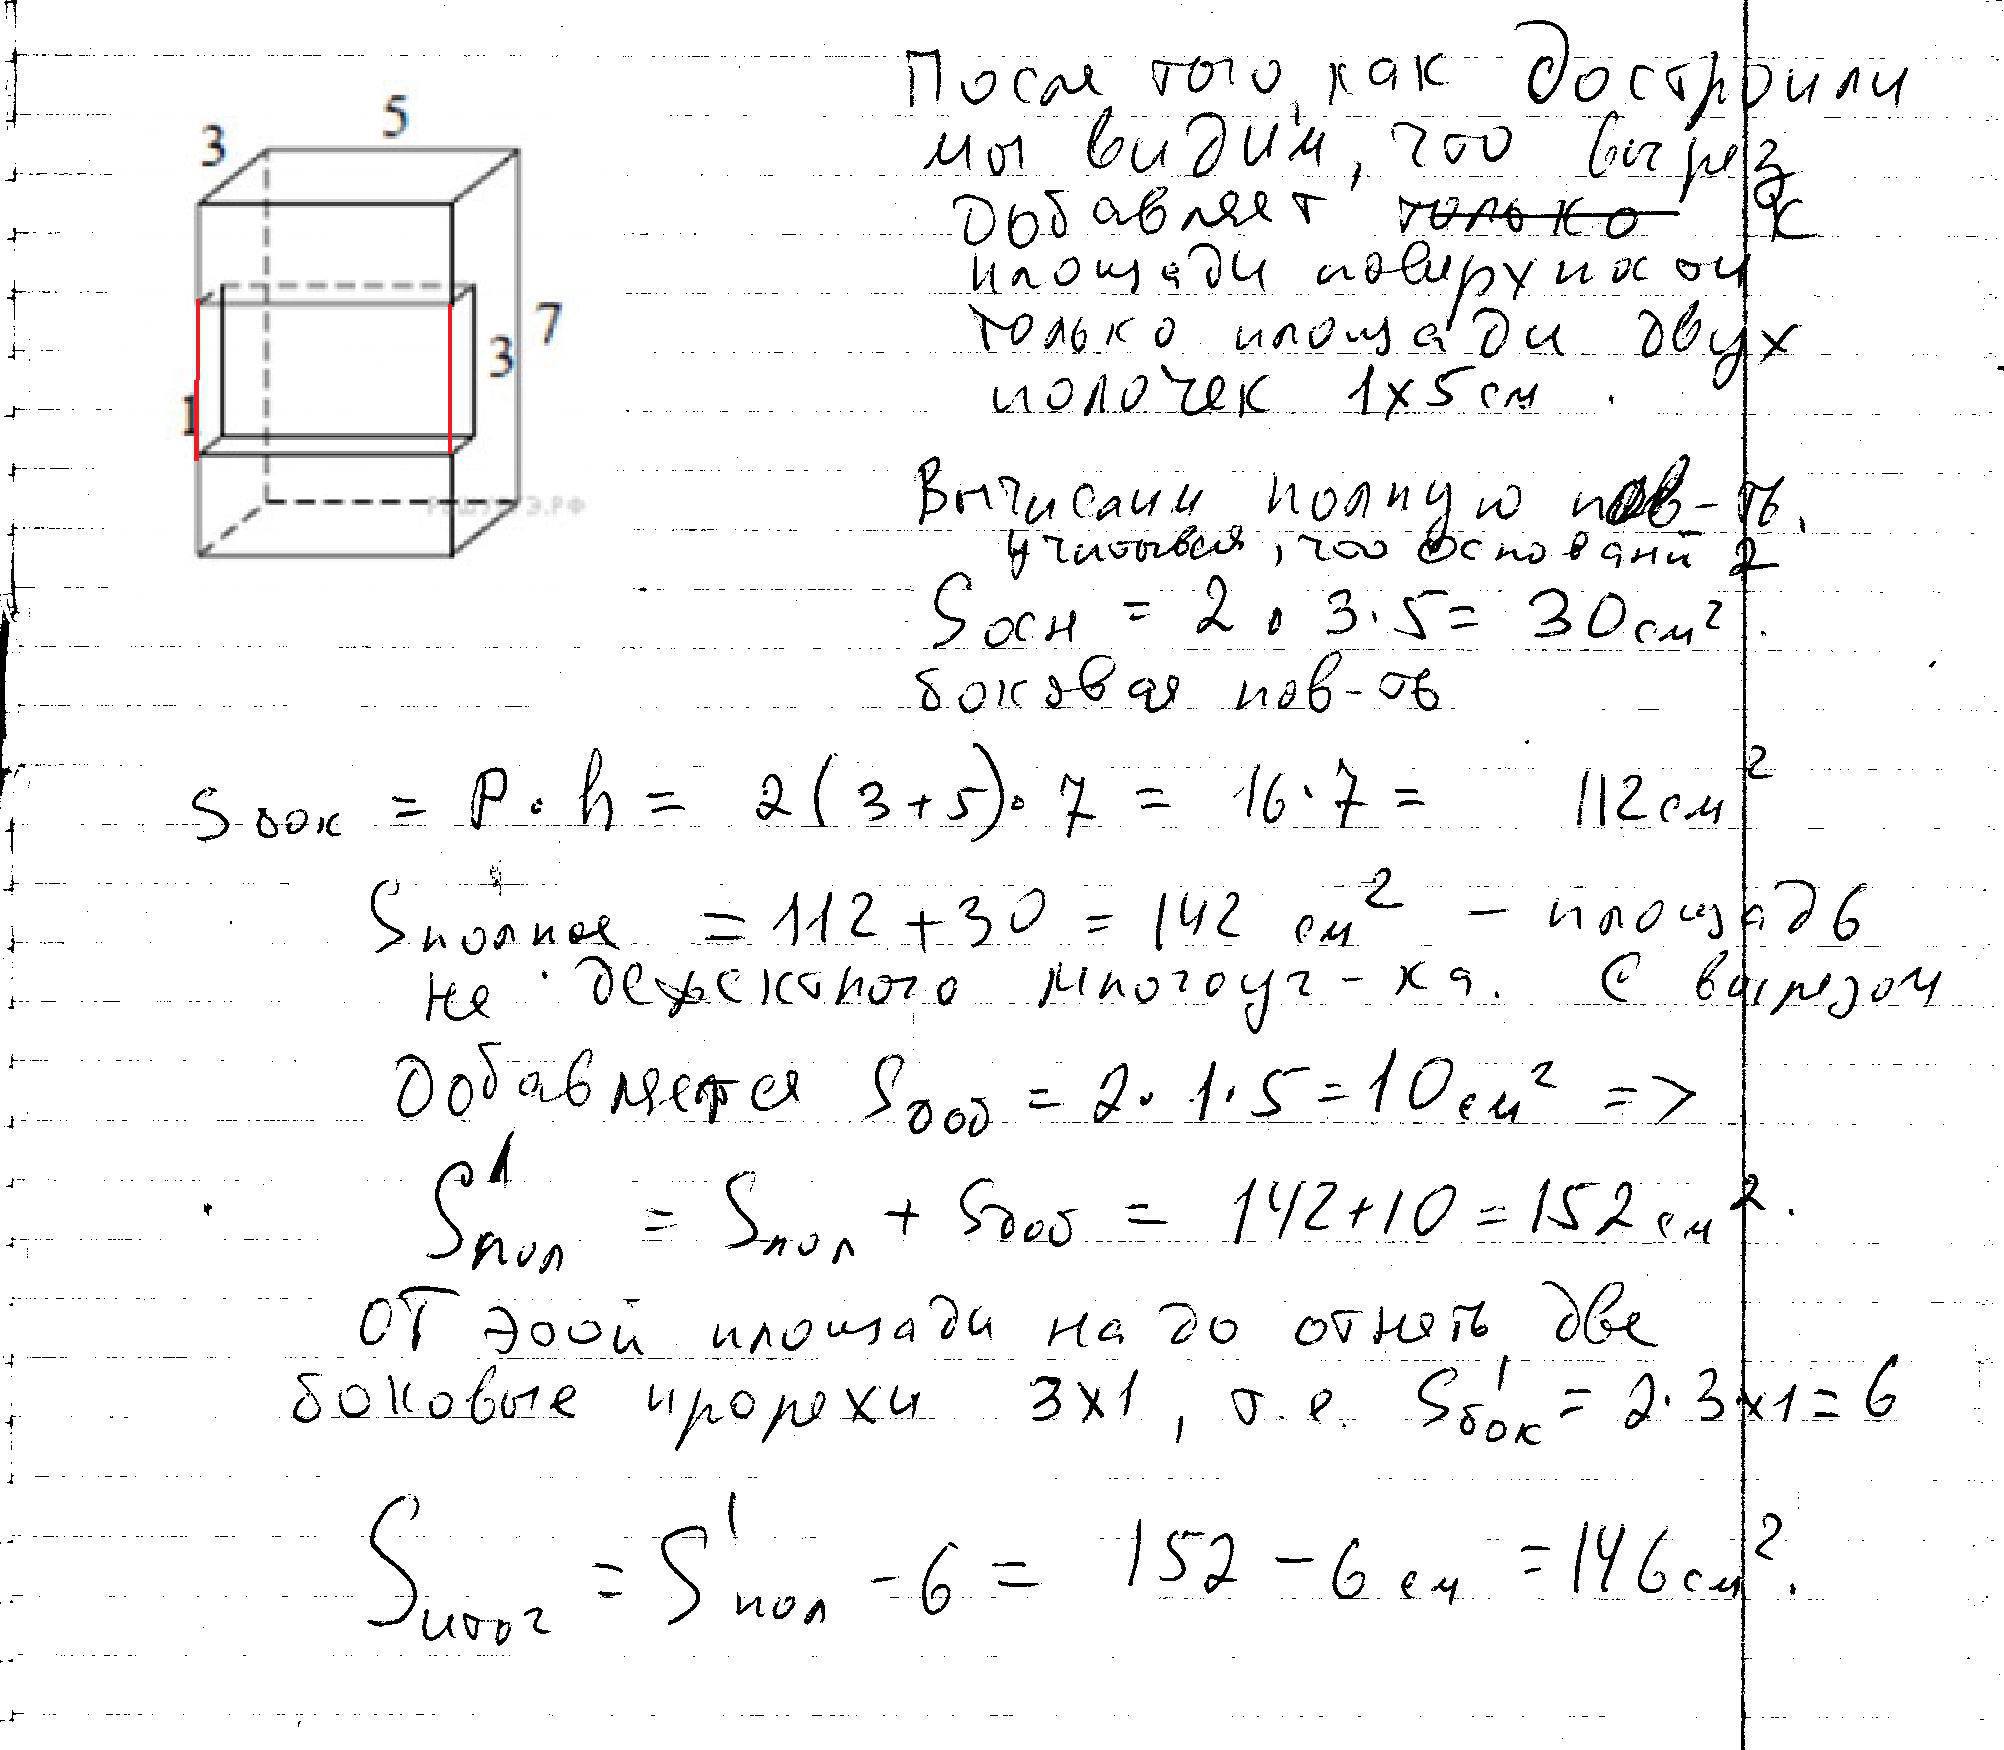 5
3
7
3
1
После того, как достроили
мы видим, что вырез
добавляет только к
площади поверхности
только площади двух
полочек 1х5 см.
Вычислим полную пов-ть.
учитывая, что оснований 2
Sосн = 2 · 3 · 5 = 30 см².
боковая пов-ть
Sбок = P · h = 2(3+5) · 7 = 16 · 7 = 112 см²
Sполная = 112 + 30 = 142 см² – площадь
не дефектного многоуг-ка. С вырезом
добавляется Sдоб = 2 · 1 · 5 = 10 см² =>
S¹пол = Sпол + Sдоб = 142+10 = 152 см².
От этой площади надо отнять две
боковые прорехи 3х1, т.е. S'бок = 2 · 3х1 = 6
Sитог = S'пол - 6 = 152 – 6 см = 146 см².